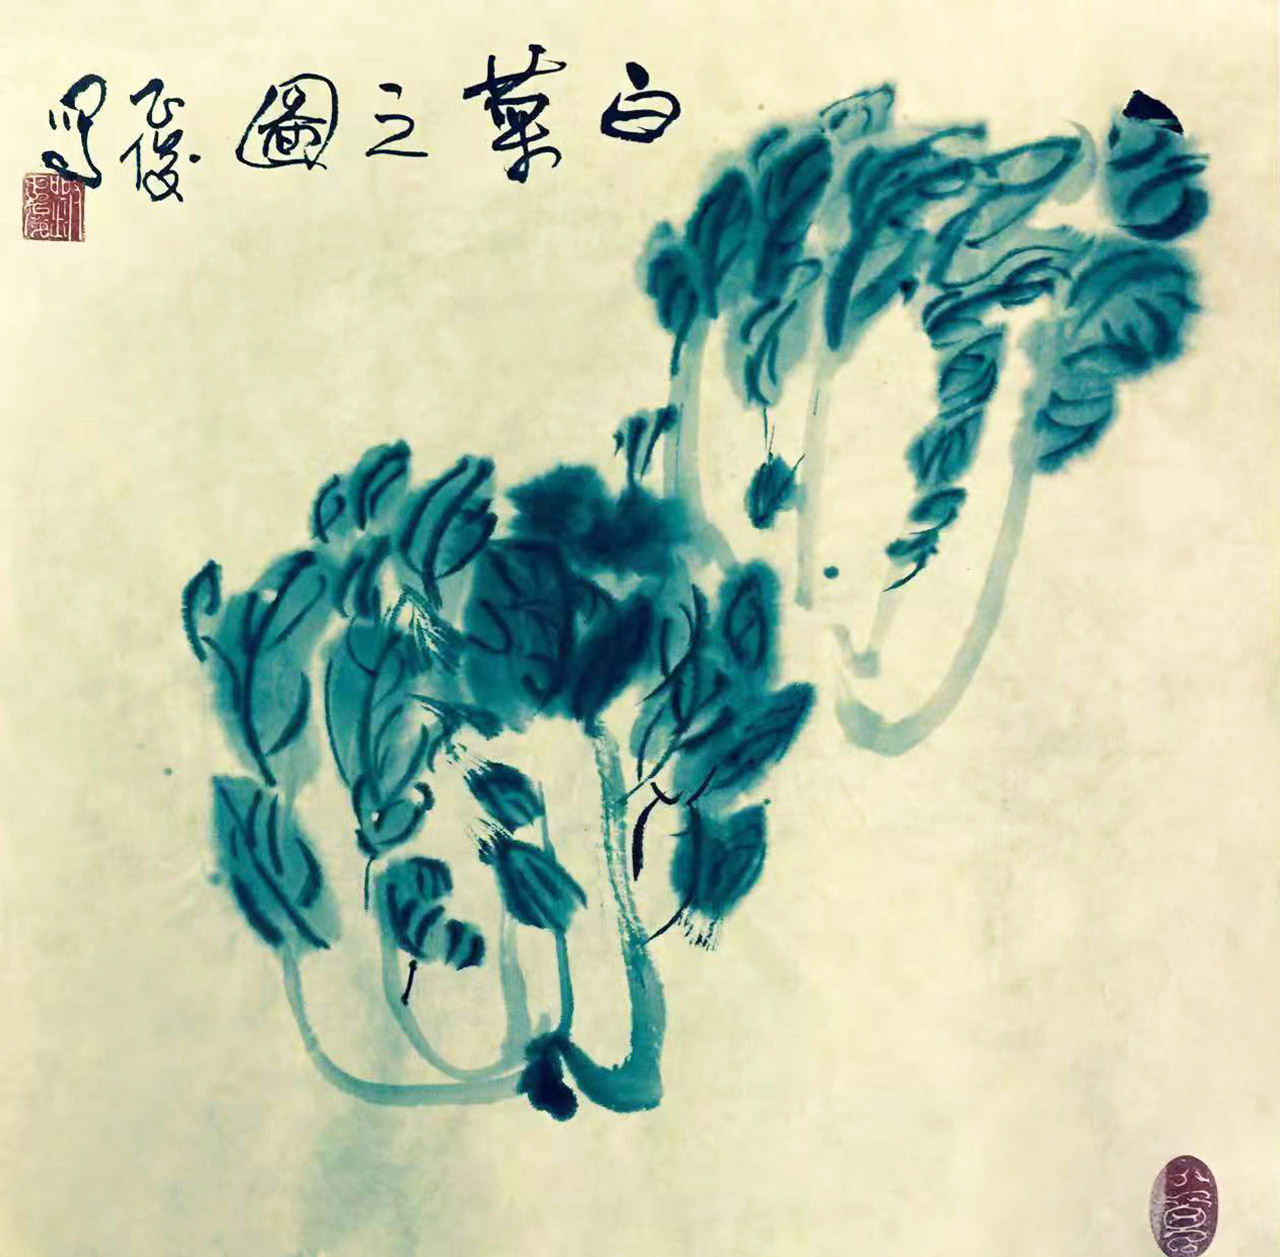 白菜之圖
飞俊写